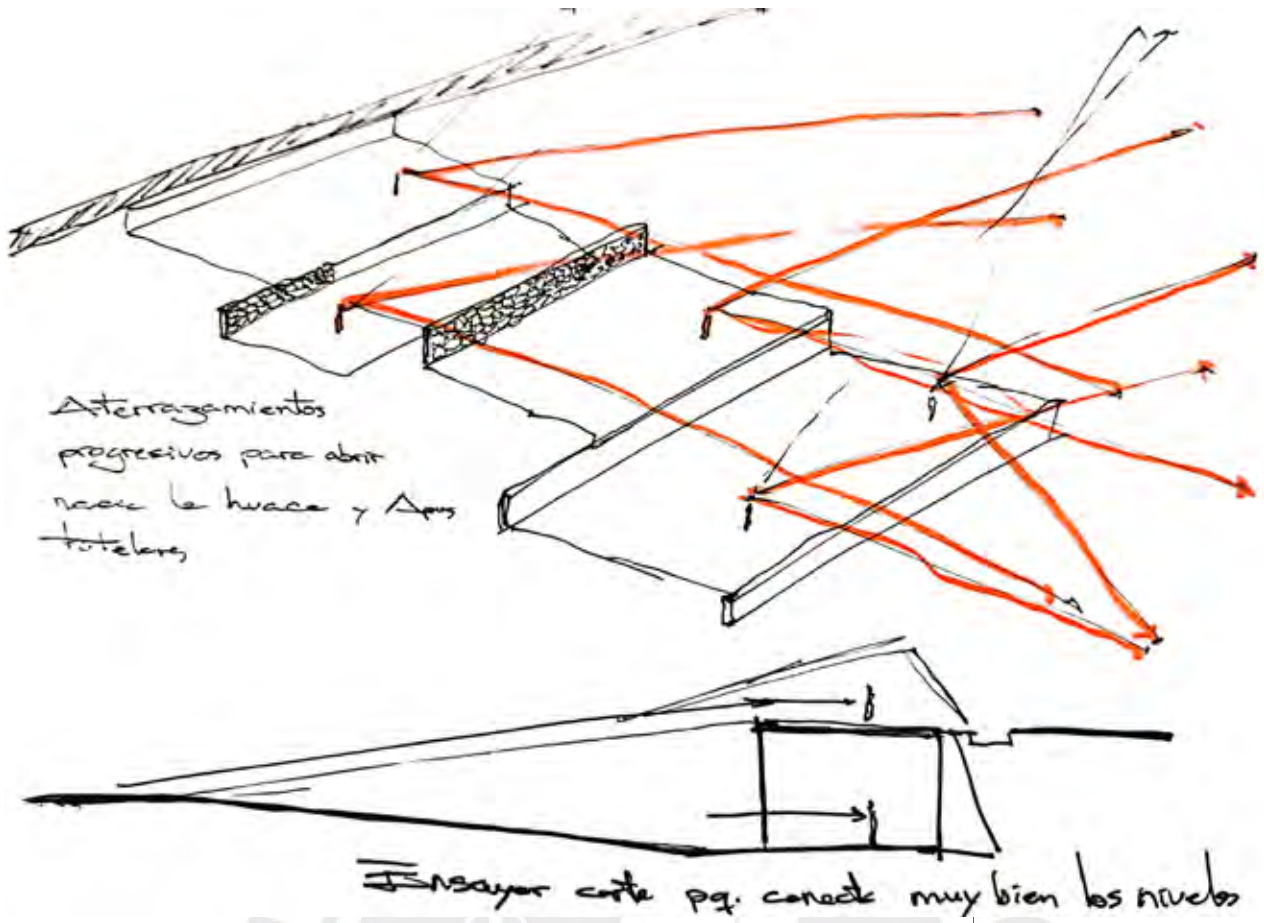 Aterrazamientos
progresivos para abrir
hacia la huaca y Apus
tutelares
Ensayar corte pq. conecta muy bien los niveles